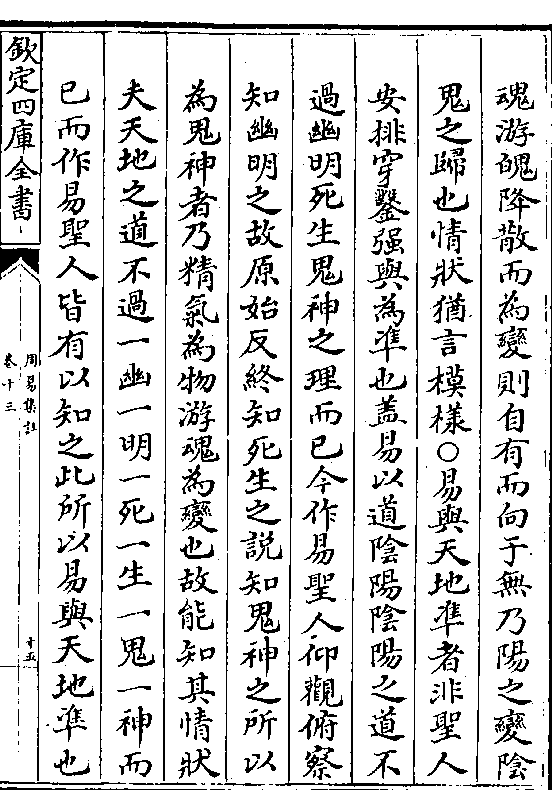 魂游魄降散而為變則自有而向于無乃陽之變陰
鬼之歸也情狀猶言模様○易與天地準者非聖人
安排穿鑿强與為準也蓋易以道陰陽陰陽之道不
過幽明死生鬼神之理而已今作易聖人仰觀俯察
知幽明之故原始反終知死生之説知鬼神之所以
為鬼神者乃精氣為物游魂為變也故能知其情狀
夫天地之道不過一幽一明一死一生一鬼一神而
已而作易聖人皆有以知之此所以易與天地準也
欽定四庫全書
周易集註
卷十三
十五